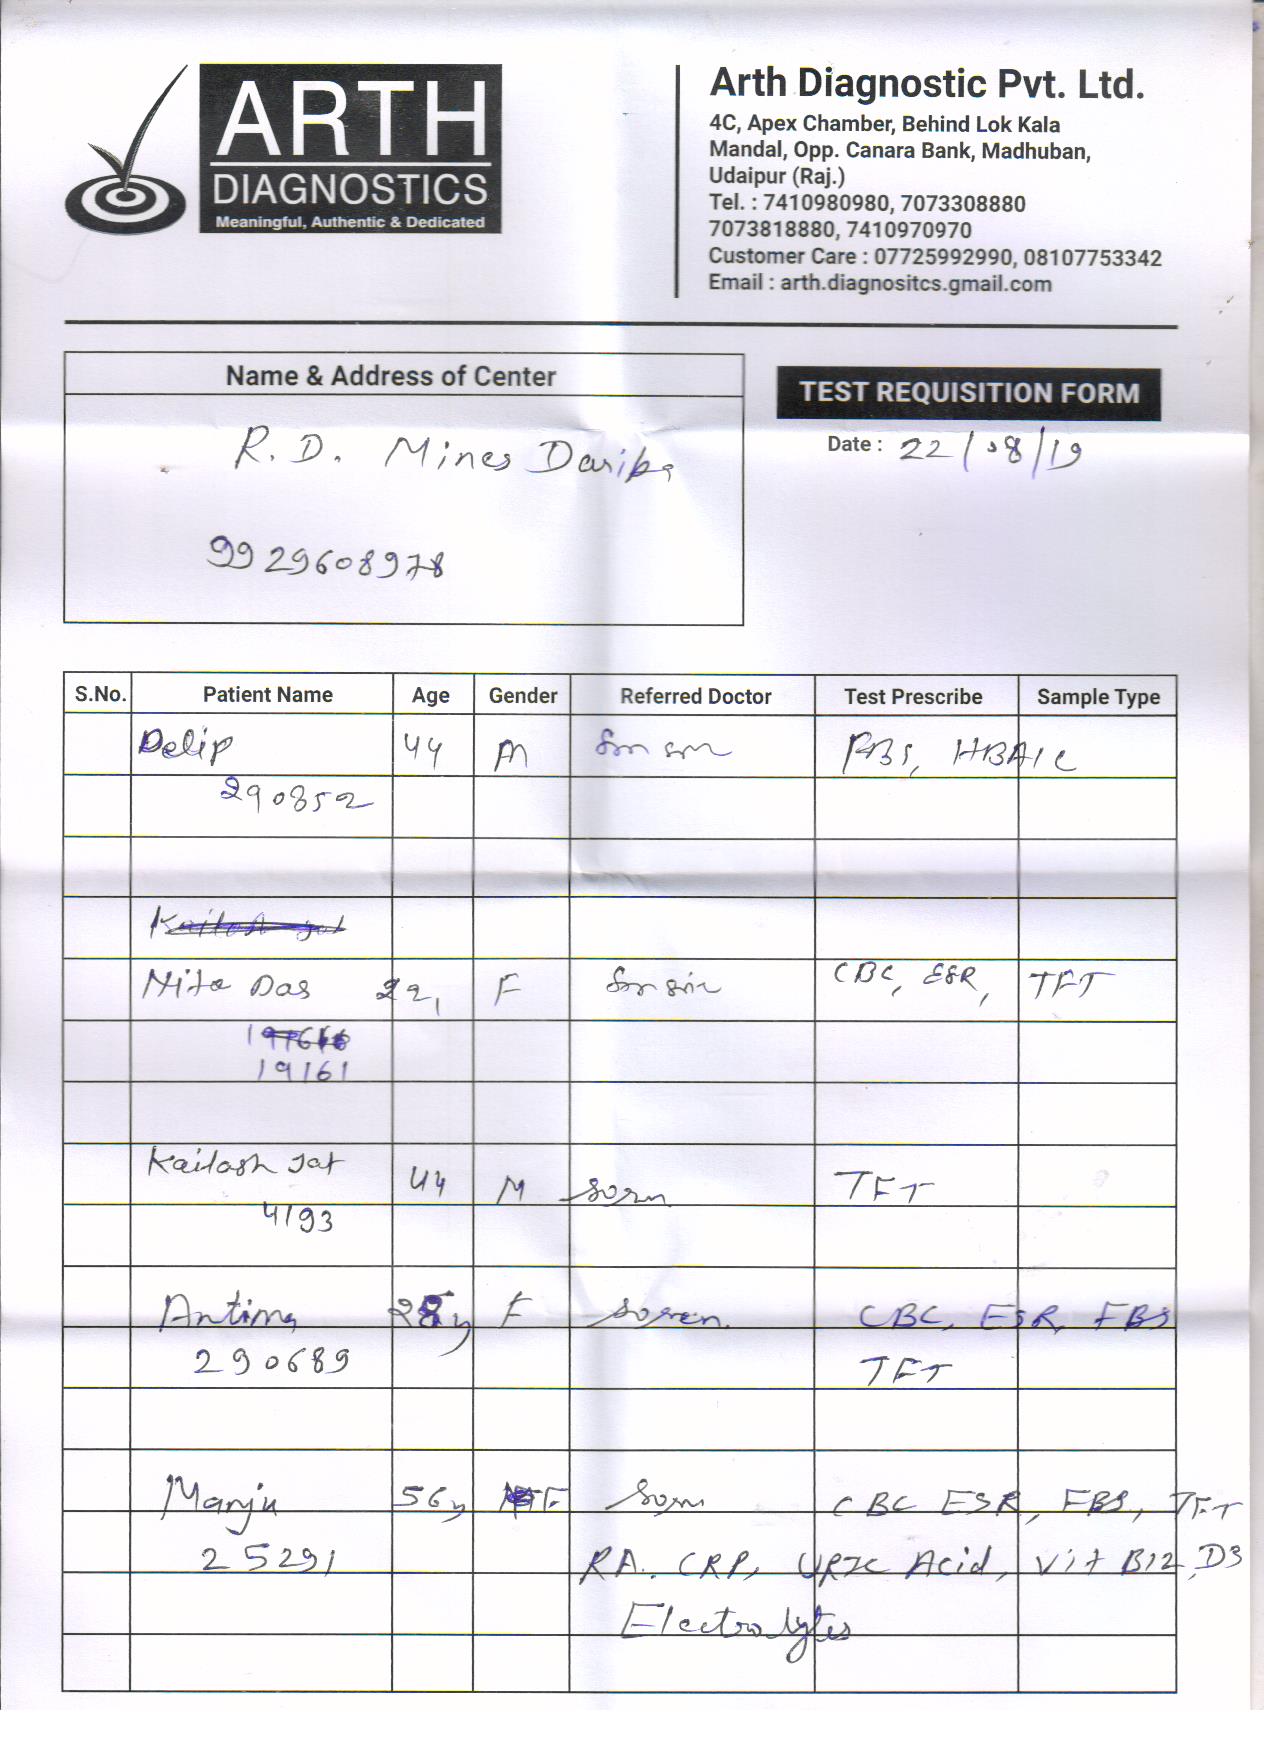 ARTH
DIAGNOSTICS
Meaningful, Authentic & Dedicated
Arth Diagnostic Pvt. Ltd.
4C, Apex Chamber, Behind Lok Kala
Mandal, Opp. Canara Bank, Madhuban,
Udaipur (Raj.)
Tel. : 7410980980, 7073308880
7073818880, 7410970970
Customer Care : 07725992990, 08107753342
Email : arth.diagnositcs.gmail.com
Name & Address of Center
TEST REQUISITION FORM
Date : 22/08/19
R.D. Mines Dariba
9929608978
S.No. Patient Name Age Gender Referred Doctor Test Prescribe Sample Type
Delip 44 M HBA1C
290852
Nita Das 22, F CBC, ESR, TFT
19161
Kailash Jat 44 M TFT
4193
Antima F soren. CBC, ESR, FBS
290689 TFT
Manju 56y F CBC ESR, FBS, TFT
25291 RA, CRP, URIC Acid, Vit B12, D3
Electrolytes